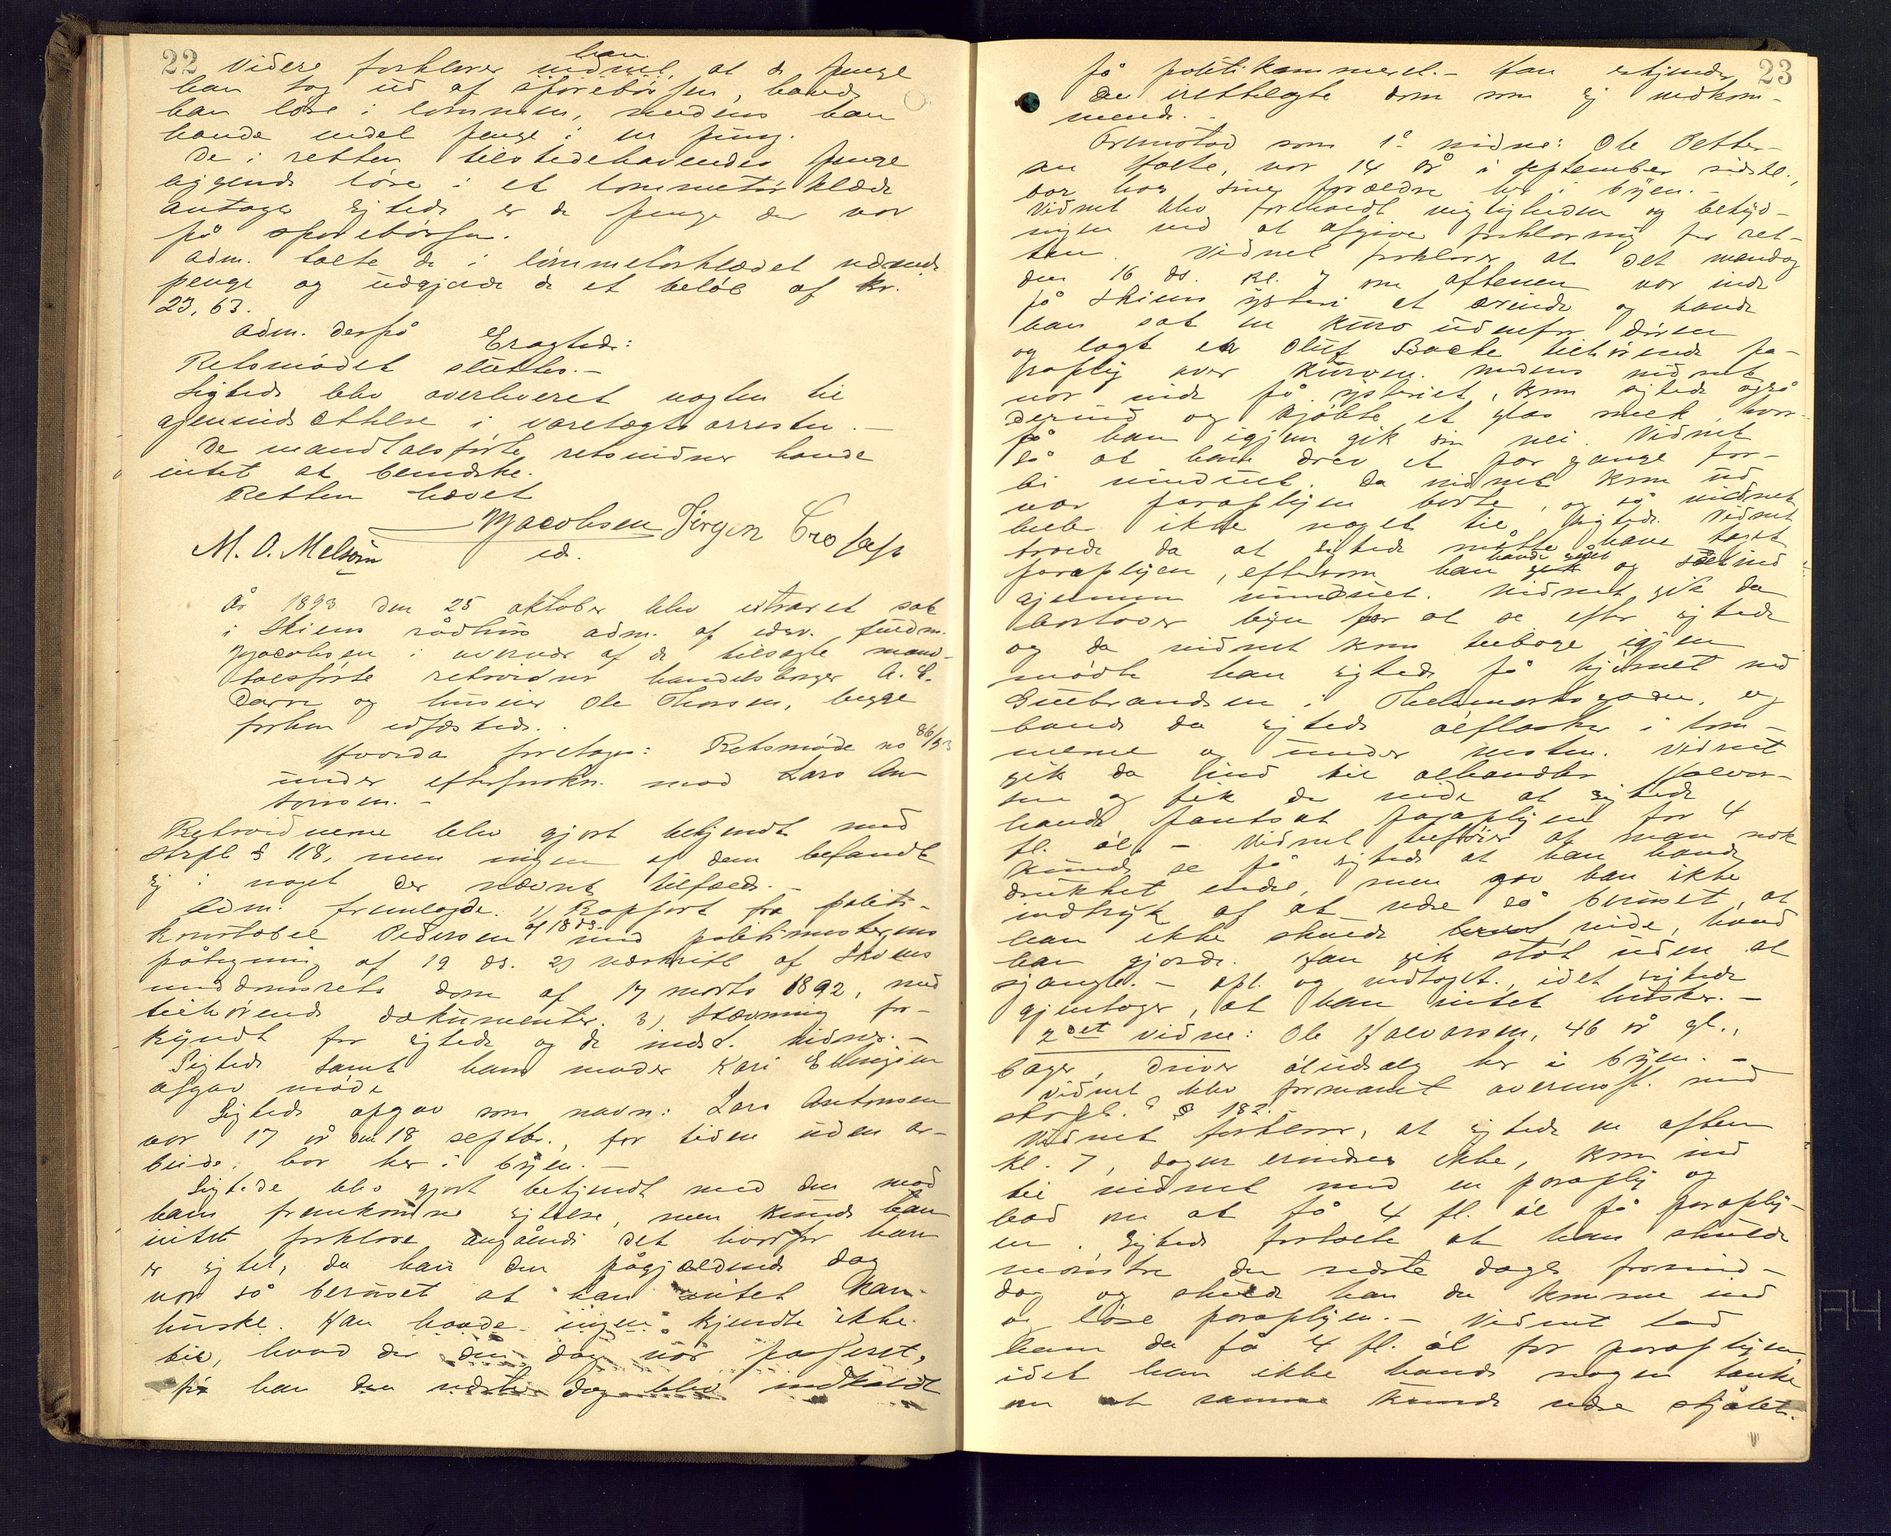 22
Videre forklarer han, at de penge
han tog ud af sparebørsen, havde
han løse i lommen, medens han
havde endel penge i en pung.
De i retten tilstedehavendes penge
liggende løse i et lommetørklæde
antager sigtede er de penge der var
på sparebørsen.
Adm. talte de i lommetørklædet værende
penge og udgjorde de et beløb af kr.
23,63.
Adm. derpå Eragted:
Retsmødet sluttes.-
Sigtede blev overleveret vagten til
gjenindsættelse i varetægtsarresten.-
De mandtalsførte retsvidner havde
intet at bemærke.
Retten hævet
Jacobsen Jørgen
M. O. Melsom ed.
År 1893 den 25 oktober blev extraret sat
i Skiens rådhus adm. af edsv. fuldm.
Jacobsen i overvær af de tilsagte mand-
talsførte retsvidner handelsborger A. E.
Darre og huseier Ole Thorsen, begge
forhen edfæstede.
Hvorda foretoges: Retsmøde no 86/93
under efterforskn. mod Lars An-
tonsen.-
Retsvidnerne blev gjort bekjendt med
strpl § 118, men ingen af dem befandt
sig i noget der nævnt tilfælde.-
Adm. fremlagde. 1) Rapport fra politi-
konstabel Pedersen af 18 ds. med politimesterens
påtegning af 19 ds. 2) udskrift af Skiens
meddomsrets dom af 17 marts 1892, med
tilhørende dokumenter. 3) Stævning for-
kyndt for sigtede og de inds. vidner.-
Sigtede samt hans moder Kari Ellingsen
afgav møde
Sigtede opgav som navn: Lars Antonsen
var 17 år den 18 septbr., for tiden uden ar-
beide, bor her i byen.-
Sigtede blev gjort bekjendt med den mod
ham fremkomne sigtelse, men kunde han
intet forklare angående det hvorfor han
er sigtet, da han den pågjældende dag
var så beruset at han intet kan
huske. Han havde ingen kjendte ikke
til, hvad der den dag var passeret,
før han den næste dag blev indkaldt
23
på politikammeret.- Han erkjender
de irettelagte dom som sig vedkom-
mende.-
Fremstod som 1ste vidne: Ole Petter-
sen Holte, var 14 år i september sidstl.,
bor hos sine forældre her i byen.-
Vidnet blev foreholdt vigtigheden og betyd-
ningen ved at afgive forklaring for ret-
ten. Vidnet forklarer at det mandag
den 16 ds. kl. 7 om aftenen var inde
på Skiens ysteri et ærinde og havde
han sat en kurv udenfor døren
og lagt en Oluf Bache tilhørende pa-
raply over kurven. Medens vidnet
var inde på ysteriet, kom sigtede også
derind og kjøbte et glas melk, hvor-
på han igjen gik sin vei. Vidnet
så at han drev et par gange for-
bi vinduet. Da vidnet kom ud
var paraplyen borte, og så vidnet
heller ikke noget til sigtede. Vidnet
troede da at sigtede måtte have taget
paraplyen, eftersom han havde gået og set ind
gjennem vinduet. Vidnet gik da
bortover byen for at se efter sigtede
og da vidnet kom tilbage igjen
mødte han sigtede på hjørnet ved
Gulbrandsen i Thelemarksgaden, og
havde da sigtede ølflasker i lom-
merne og under vesten. Vidnet
gik da ind til ølhandler Halvor-
sen og fik da vide at sigtede
havde pantsat paraplyen for 4
fl. øl.- Vidnet tilføier at man nok
kunde se på sigtede at han havde
drukket endel, men gav han ikke
indtryk af at være så beruset, at
han ikke skulde vide, hvad
han gjorde. Han gik støt uden at
sjangle.- Opl. og vedtaget, idet sigtede
gjentager, at han intet husker.-
2det vidne: Ole Halvorsen, 46 år gl.,
bager, driver øludsalg her i byen.-
Vidnet blev formanet overensst. med
strpl. § 182.
Vidnet forklarer, at sigtede en aften
kl. 7, dagen erindres ikke, kom ind
til vidnet med en paraply og
bad om at få 4 fl. øl på paraply-
en. Sigtede fortalte at han skulde
mønstre den næste dags formid-
dag og skulde han da komme ind
og løse paraplyen.- Vidnet lod
ham da få 4 fl. øl for paraplyen,
idet han ikke havde nogen tanke
om at samme kunde være stjålet.